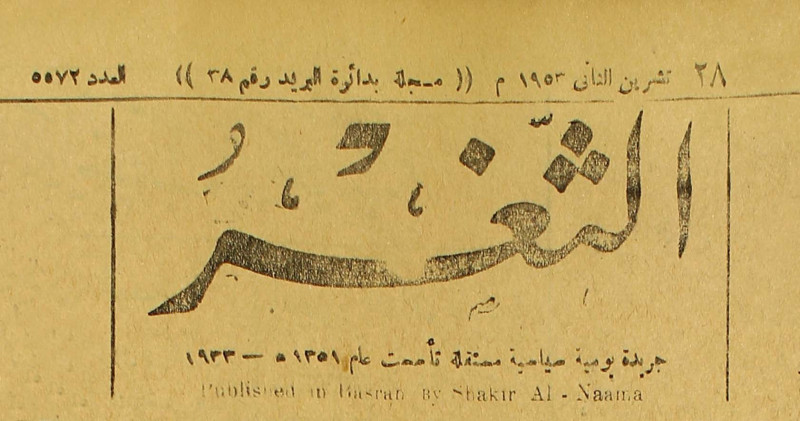 ٢٨ تشرين الثاني ١٩٥٣ م (( مسجلة بدائرة البريد رقم ٣٨ )) العدد ٥٥٧٢
الثَّغْرُ
جريدة يومية سياسية مستقلة تأسست عام ١٣٥١ ه — ١٩٣٣
Published in Basrah by Shakir Al - Naama